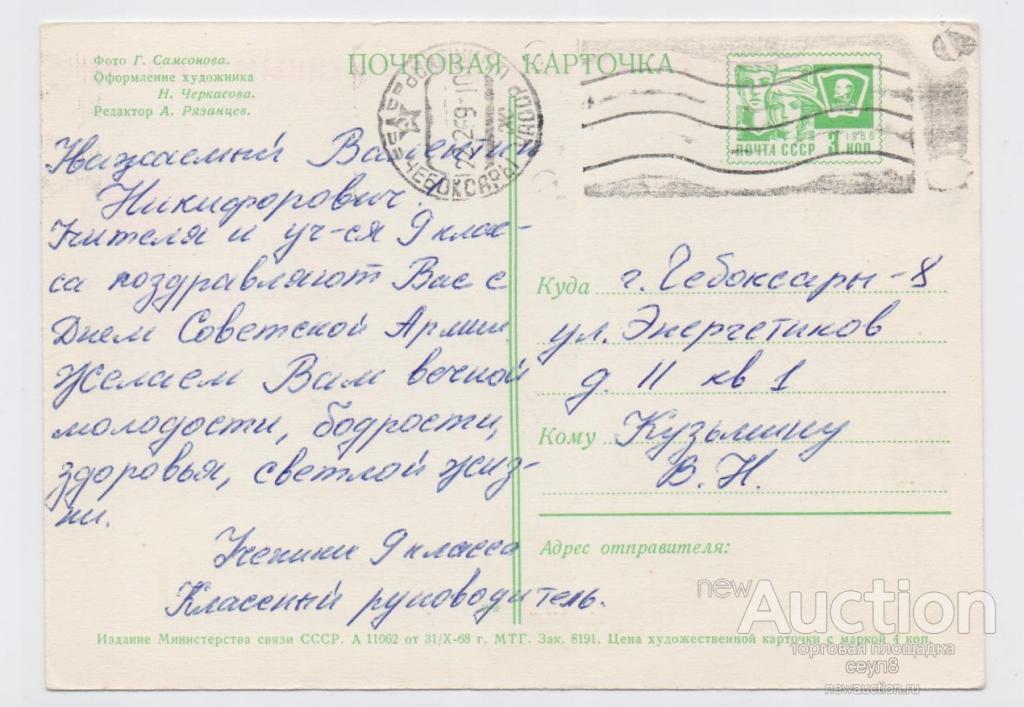 Фото Г. Самсонова.
Оформление художника
Н. Черкасова.
Редактор А. Рязанцев.
ПОЧТОВАЯ КАРТОЧКА
ЧЕБОКСАРЫ
ПОЧТА СССР 3 КОП
1966
Уважаемый Валентин
Никифорович.
Учителя и уч-ся 9 клас-
са поздравляют Вас с
Днем Советской Армии.
Желаем Вам вечной
молодости, бодрости,
здоровья, светлой жиз-
ни.
Ученики 9 класса
Классный руководитель.
Куда г. Чебоксары-8
ул. Энергетиков
д. 11 кв 1
Кому Кузьмину
В. Н.
Адрес отправителя:
Издание Министерства связи СССР. А 11062 от 31/X-68 г. МТГ. Зак. 8191. Цена художественной карточки с маркой 4 коп.
newAuction
торговая площадка
сеул8
newauction.ru